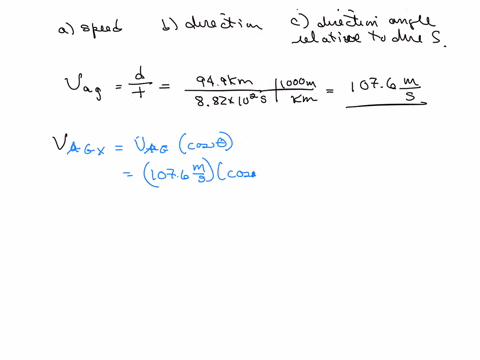 a) speed b) direction c) direction angle
relative to due S.
V_ag = d/t = 94.9km / 8.82x10^2 s | 1000m / km = 107.6 m/s
V_AGx = V_AG (cosθ)
= (107.6 m/s)(cos